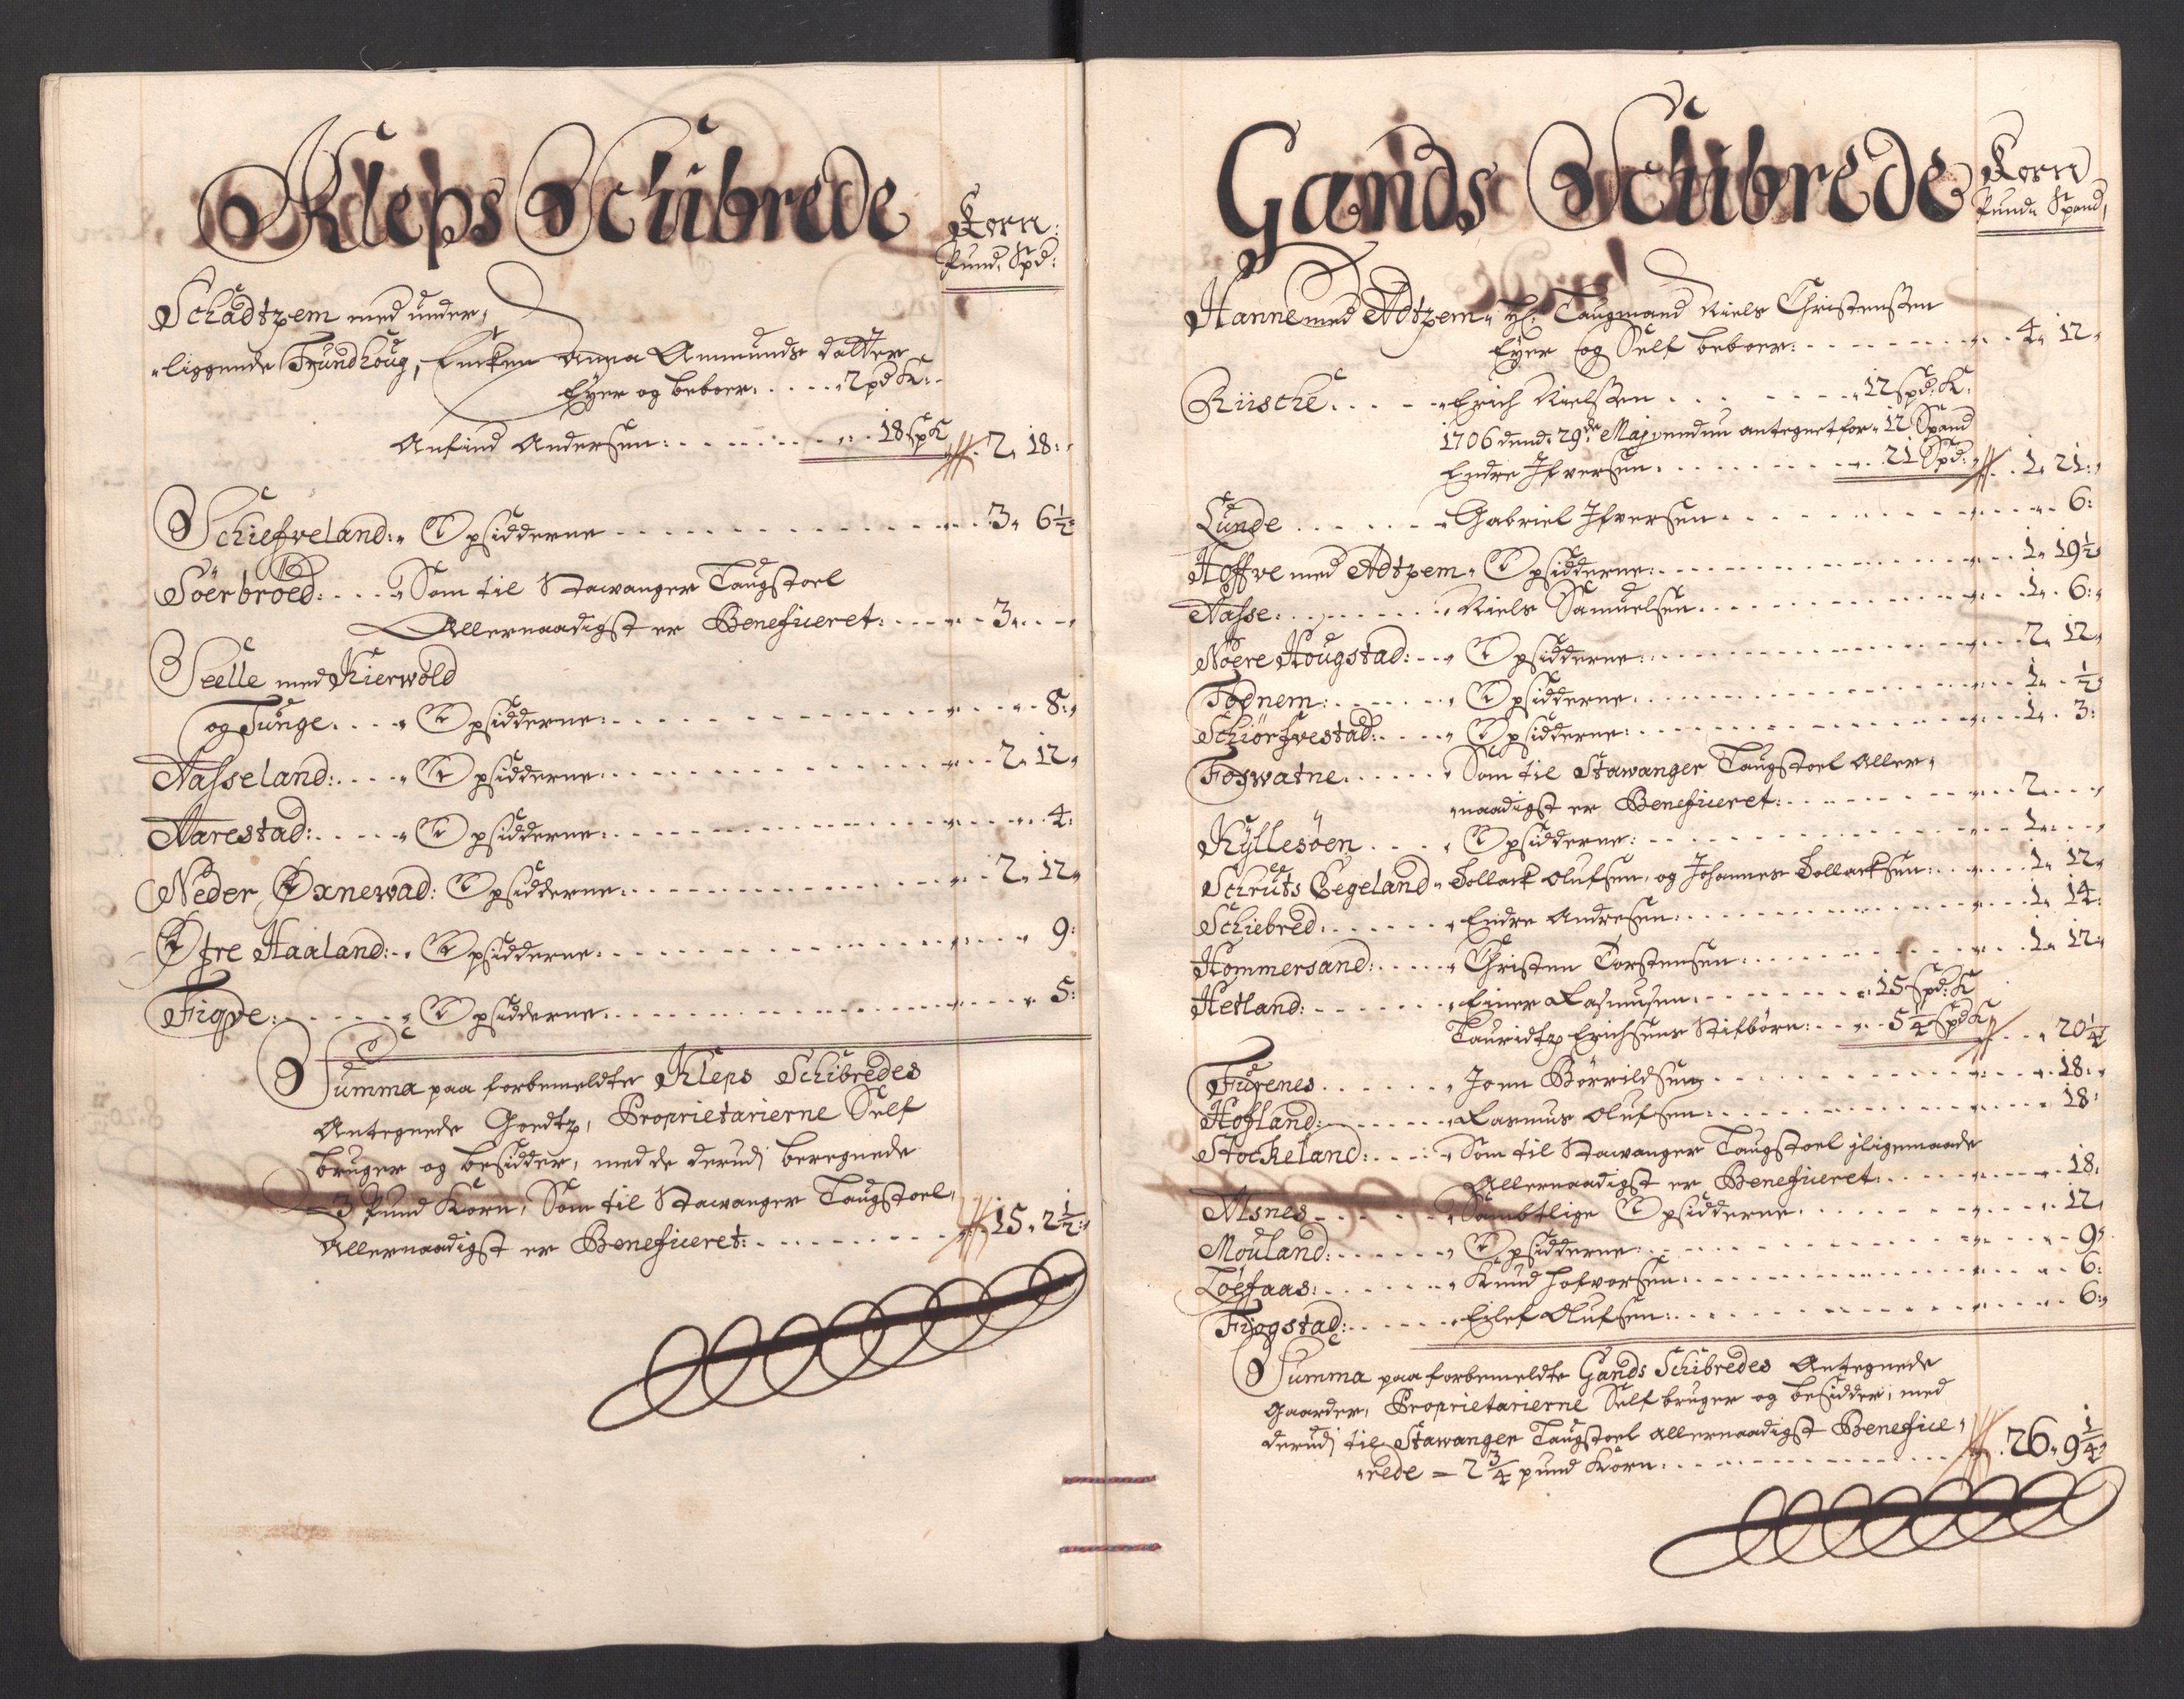 Kleps Schibrede
Korn:
Pund. Spd:
Schadtzem med under,
liggende Trundhoug, Encken Anna Ammunds datter
Eyer og beboer. . . . . 2 pd K:
Anfind Andersen: . . . . . 18 sp K 2, 18:
Schiefveland: Opsidderne . . . . . 3, 6 1/2
Söerbroed: . . . Som til Stavanger Laugstoel
Allernaadigst er Beneficeret: . . . . . 3, . . .
Seelle med Kierwold
og Tunge. . . . Opsidderne: . . . . . 8:
Aasseland: . . . . Opsidderne: . . . . . 2, 12,
Aarestad: . . . . Opsidderne: . . . . . 4:
Neder Øxnewad: Opsidderne: . . . . . 2, 12,
Øfre Haaland: . . Opsidderne: . . . . . 9:
Figve: . . . . . Opsidderne: . . . . . 5:
Summa paa forbemeldte Kleps Schibredes
Antegnede Goedtz, Proprietarierne Self
bruger og besidder, med de derudj beregnede
3 Pund Korn, Som til Stavanger Laugstoel,
Allernaadigst er Beneficeret: . . . . . 15, 2 1/2:
Gands Schibrede
Korn
Pund, Spand,
Hanne med Adtzem, Laugmand Niels Christensen
Eyer og Self beboer: . . . . . 4, 12,
Riische. . . . . Erich Nielsen . . . . . 12 spd: K.
1706 dend. 29de Maj endnu antegnet for, 12 Spand
Endre Ifversen. . . . . 21 Spd: 1, 21:
Lunde . . . . . Gabriel Ifversen . . . . . 6:
Hoffve med Adtzem, Opsidderne: . . . . . 1, 19 1/2
Aasse: . . . . . Niels Samuelsen . . . . . 1, 6:
Nöere Hougstad: . . . Opsidderne: . . . . . 2, 12,
Fognem: . . . . . Opsidderne. . . . . 1, 1/2
Schiörfvestad: . . . . Opsidderne: . . . . . 1, 3:
Foswatne. . . . . Som til Stawanger Laugstoel Aller,
naadigst er Beneficeret: . . . . . 2, . . .
Kyllesöen . . . . Opsidderne: . . . . . 1, . . .
Schruts Eegeland, Tollack Olufsen, og Johannes Tollacksen: . . . 1, 12,
Schiebred: . . . . . Endre Andresen: . . . . . 1, 14:
Hommersand: . . . . . Christen Torstensen: . . . . . 1, 12,
Hetland: . . . . . Einer Rasmusen. . . . . 15 spd: K
Lauridtz Erichsens Stifbörn: . . . 5 1/4 spd K 20 1/4
Furenes . . . . . Joen Börrildsen . . . . . 18:
Hofland: . . . . . Rasmus Olufsen: . . . . . 18:
Stockeland: . . . . Som til Stavanger Laugstoel jligemaade
Allernaadigst er Beneficeret: . . . . . 18,
Alsnes . . . . . Sambtlige Opsidderne. . . . . 12,
Mouland: . . . . . Opsidderne: . . . . . 9,
Löefaas: . . . . . Knud Hafvorsen: . . . . . 6:
Fiogstad: . . . . . Eilef Olufsen: . . . . . 6:
Summa paa forbemeldte Gands Schibredes Antegnede
Gaarder, Proprietarierne Self bruger og besidder, med
derudj til Stawanger Laugstoel allernaadigst Benefice,
rede = 2 3/4 pund Korn: . . . . . 26, 9 1/4: